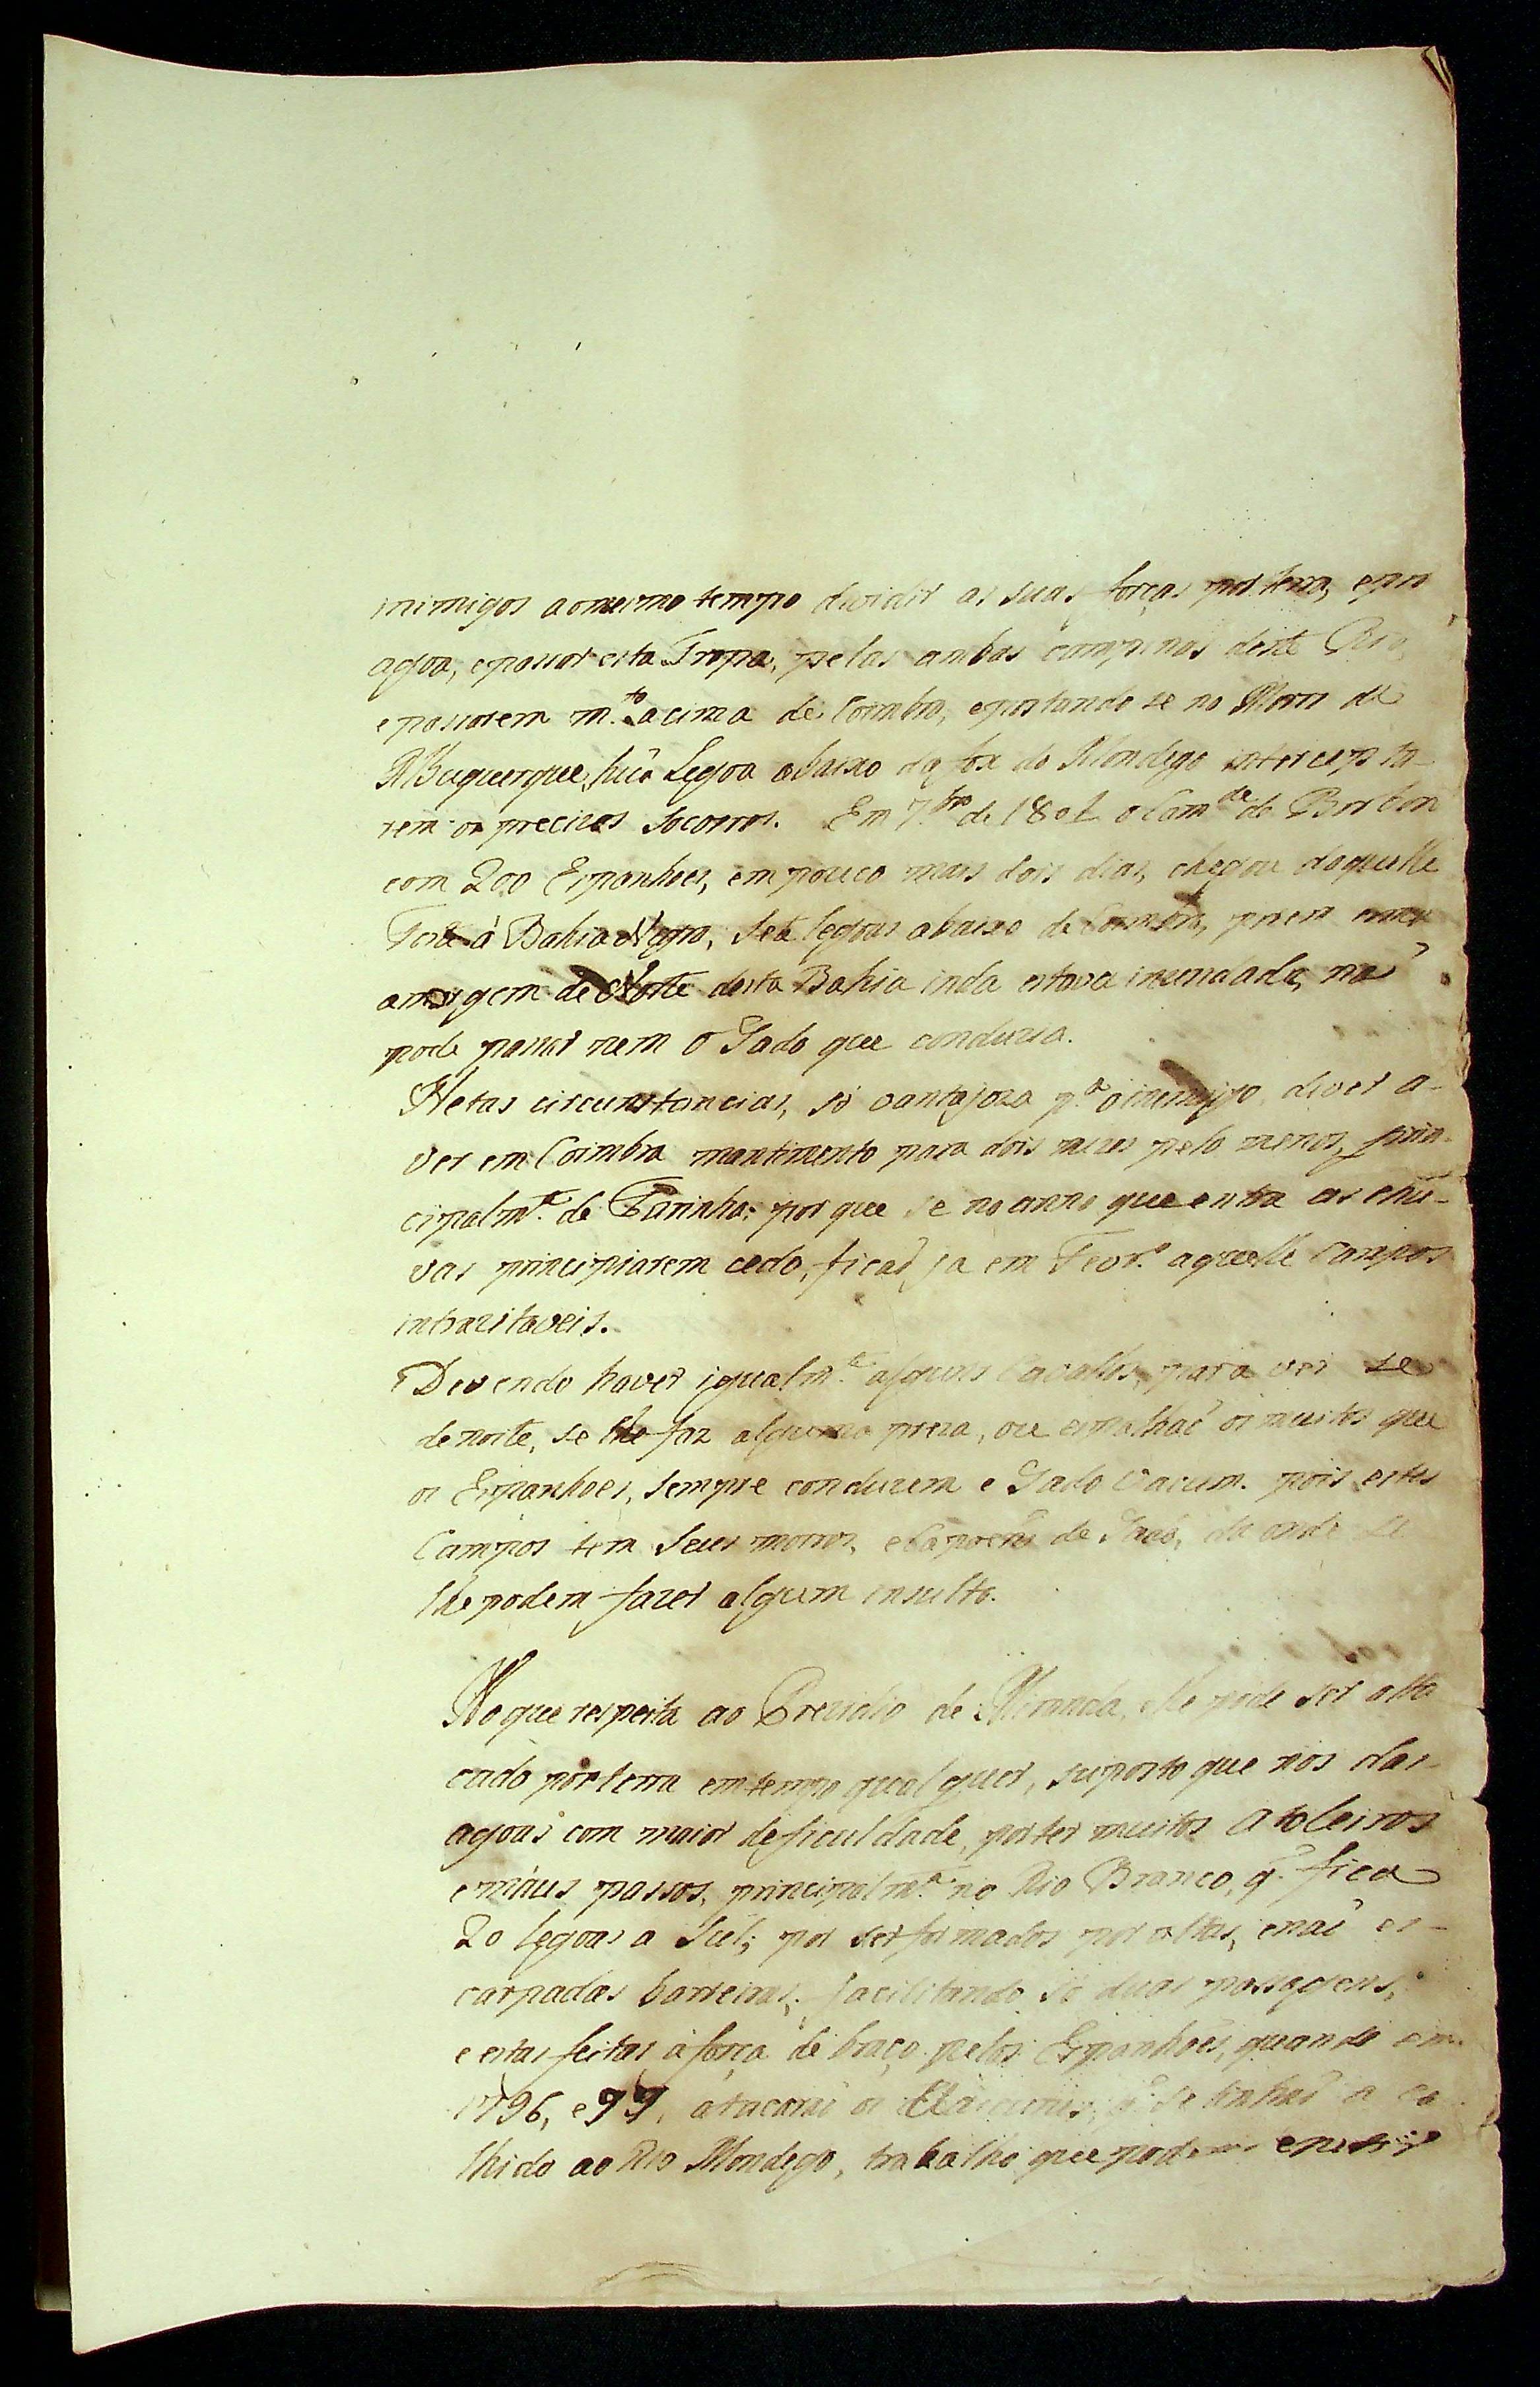 inimigos aomesmo tempo dividir as suas forças por terra, epor
agoa, epassar esta Tropa, pelas ambas campinas deste Rio,
epassarem m.to acima de Coimbra, epostando se no Morro de
Albuquerque, huã Legoa abaixo da fox do Mondego intercepta-
rem os precizos Socorros. Em 7.bro de 1801 o Com.de de Borbon
com 200 Espanhoes, em pouco mais dois dias, chegou daquelle
Forte á Bahia Negra, Sete legoas abaixo de Coimbra, porem
amargem de Norte desta Bahia inda estava inundada, naõ
pode passar nem o Gado que conduzia.
Netas circunstancias, só vantajoza p.a oinimigo, dever a-
ver em Coimbra mantimento para dois mezes pelo menos, prin-
cipalm.te de Farinha; por que se no anno que entra as chu-
vas principiarem cedo, ficaõ ja em Fevr.o aquelle Campos
intrazitaveis.
Devendo haver igualm.te alguns Cavallos, para ver se
denoite, se lhe faz alguma preza, ou espalhaõ os muitos que
os Espanhoes, sempre conduzem e Gado Vacum. pois estes
Campos tem Seus morros, e Capoens de , da onde se
lhe podem fazer algum insulto.
No que respeita ao Prezidio de Miranda, elle pode ser atta
cado porterra emtempo qualquer, suposto que nos das
agoas com maior deficuldade, porter muitos Atoleiros
emáus passos, principalm.te no Rio Branco, q. fica
20 legoas a Sul; por ser formados por altas, enaõ es-
carpadas barreiras, facilitando só duas passagens,
e estas feitas áforça de braço pelos Espanhoes, quando em
1796, e99, atacaraõ os q. se tinhaõ a co
lhido ao Rio Mondego, trabalho que podem